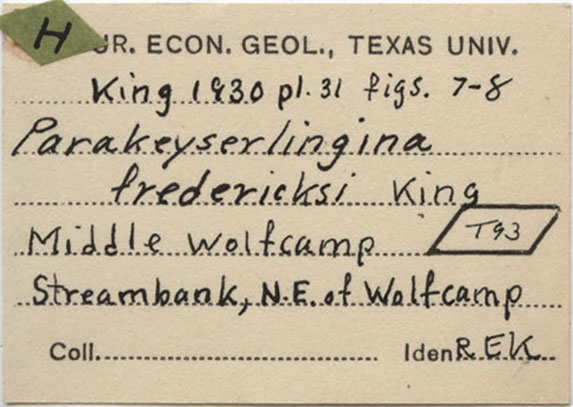 H UR. ECON. GEOL., TEXAS UNIV.
King 1930 pl. 31 figs. 7-8
Parakeyserlingina
fredericksi King
Middle Wolfcamp T93
Streambank, N.E. of Wolfcamp
Coll. Iden REK